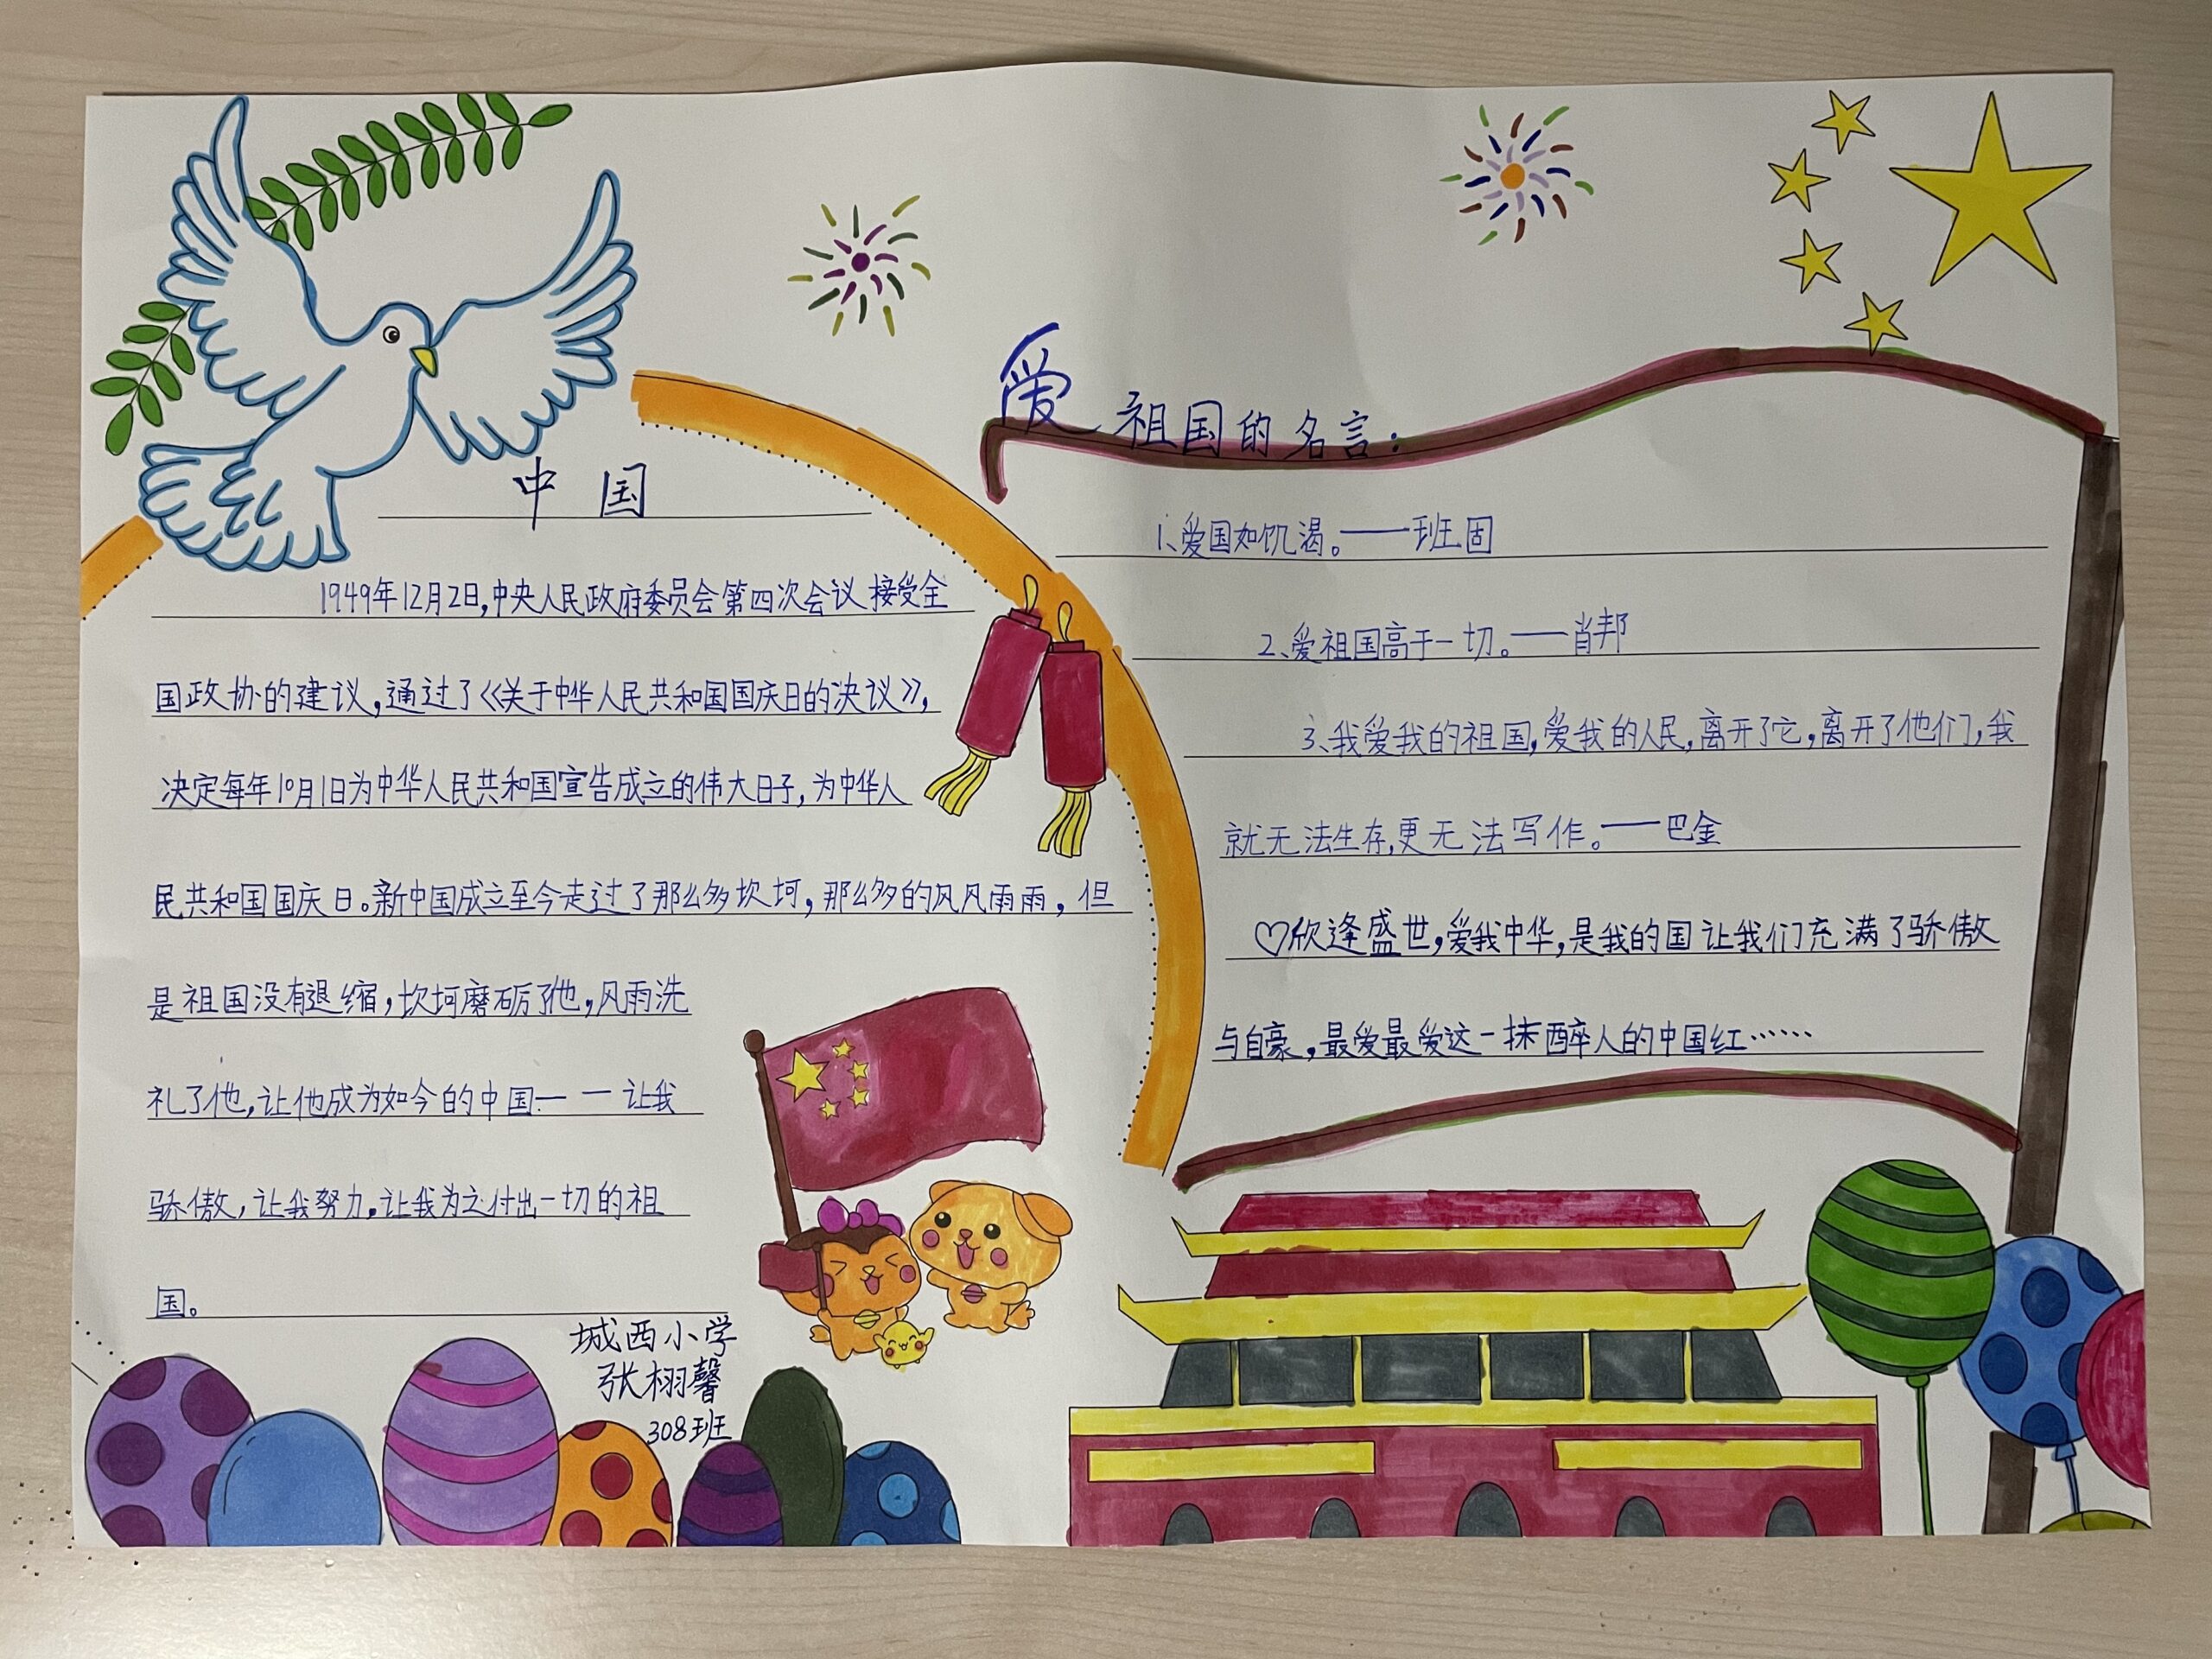 中国
1949年12月2日,中央人民政府委员会第四次会议接受全
国政协的建议,通过了《关于中华人民共和国国庆日的决议》,
决定每年10月1日为中华人民共和国宣告成立的伟大日子,为中华人
民共和国国庆日。新中国成立至今走过了那么多坎坷,那么多的风风雨雨,但
是祖国没有退缩,坎坷磨砺了他,风雨洗
礼了他,让他成为如今的中国——让我
骄傲,让我努力,让我为之付出一切的祖
国。
城西小学
张栩馨
308班
爱祖国的名言:
1、爱国如饥渴。——班固
2、爱祖国高于一切。——肖邦
3、我爱我的祖国,爱我的人民,离开了它,离开了他们,我
就无法生存,更无法写作。——巴金
♡欣逢盛世,爱我中华,是我的国让我们充满了骄傲
与自豪,最爱最爱这一抹醉人的中国红……